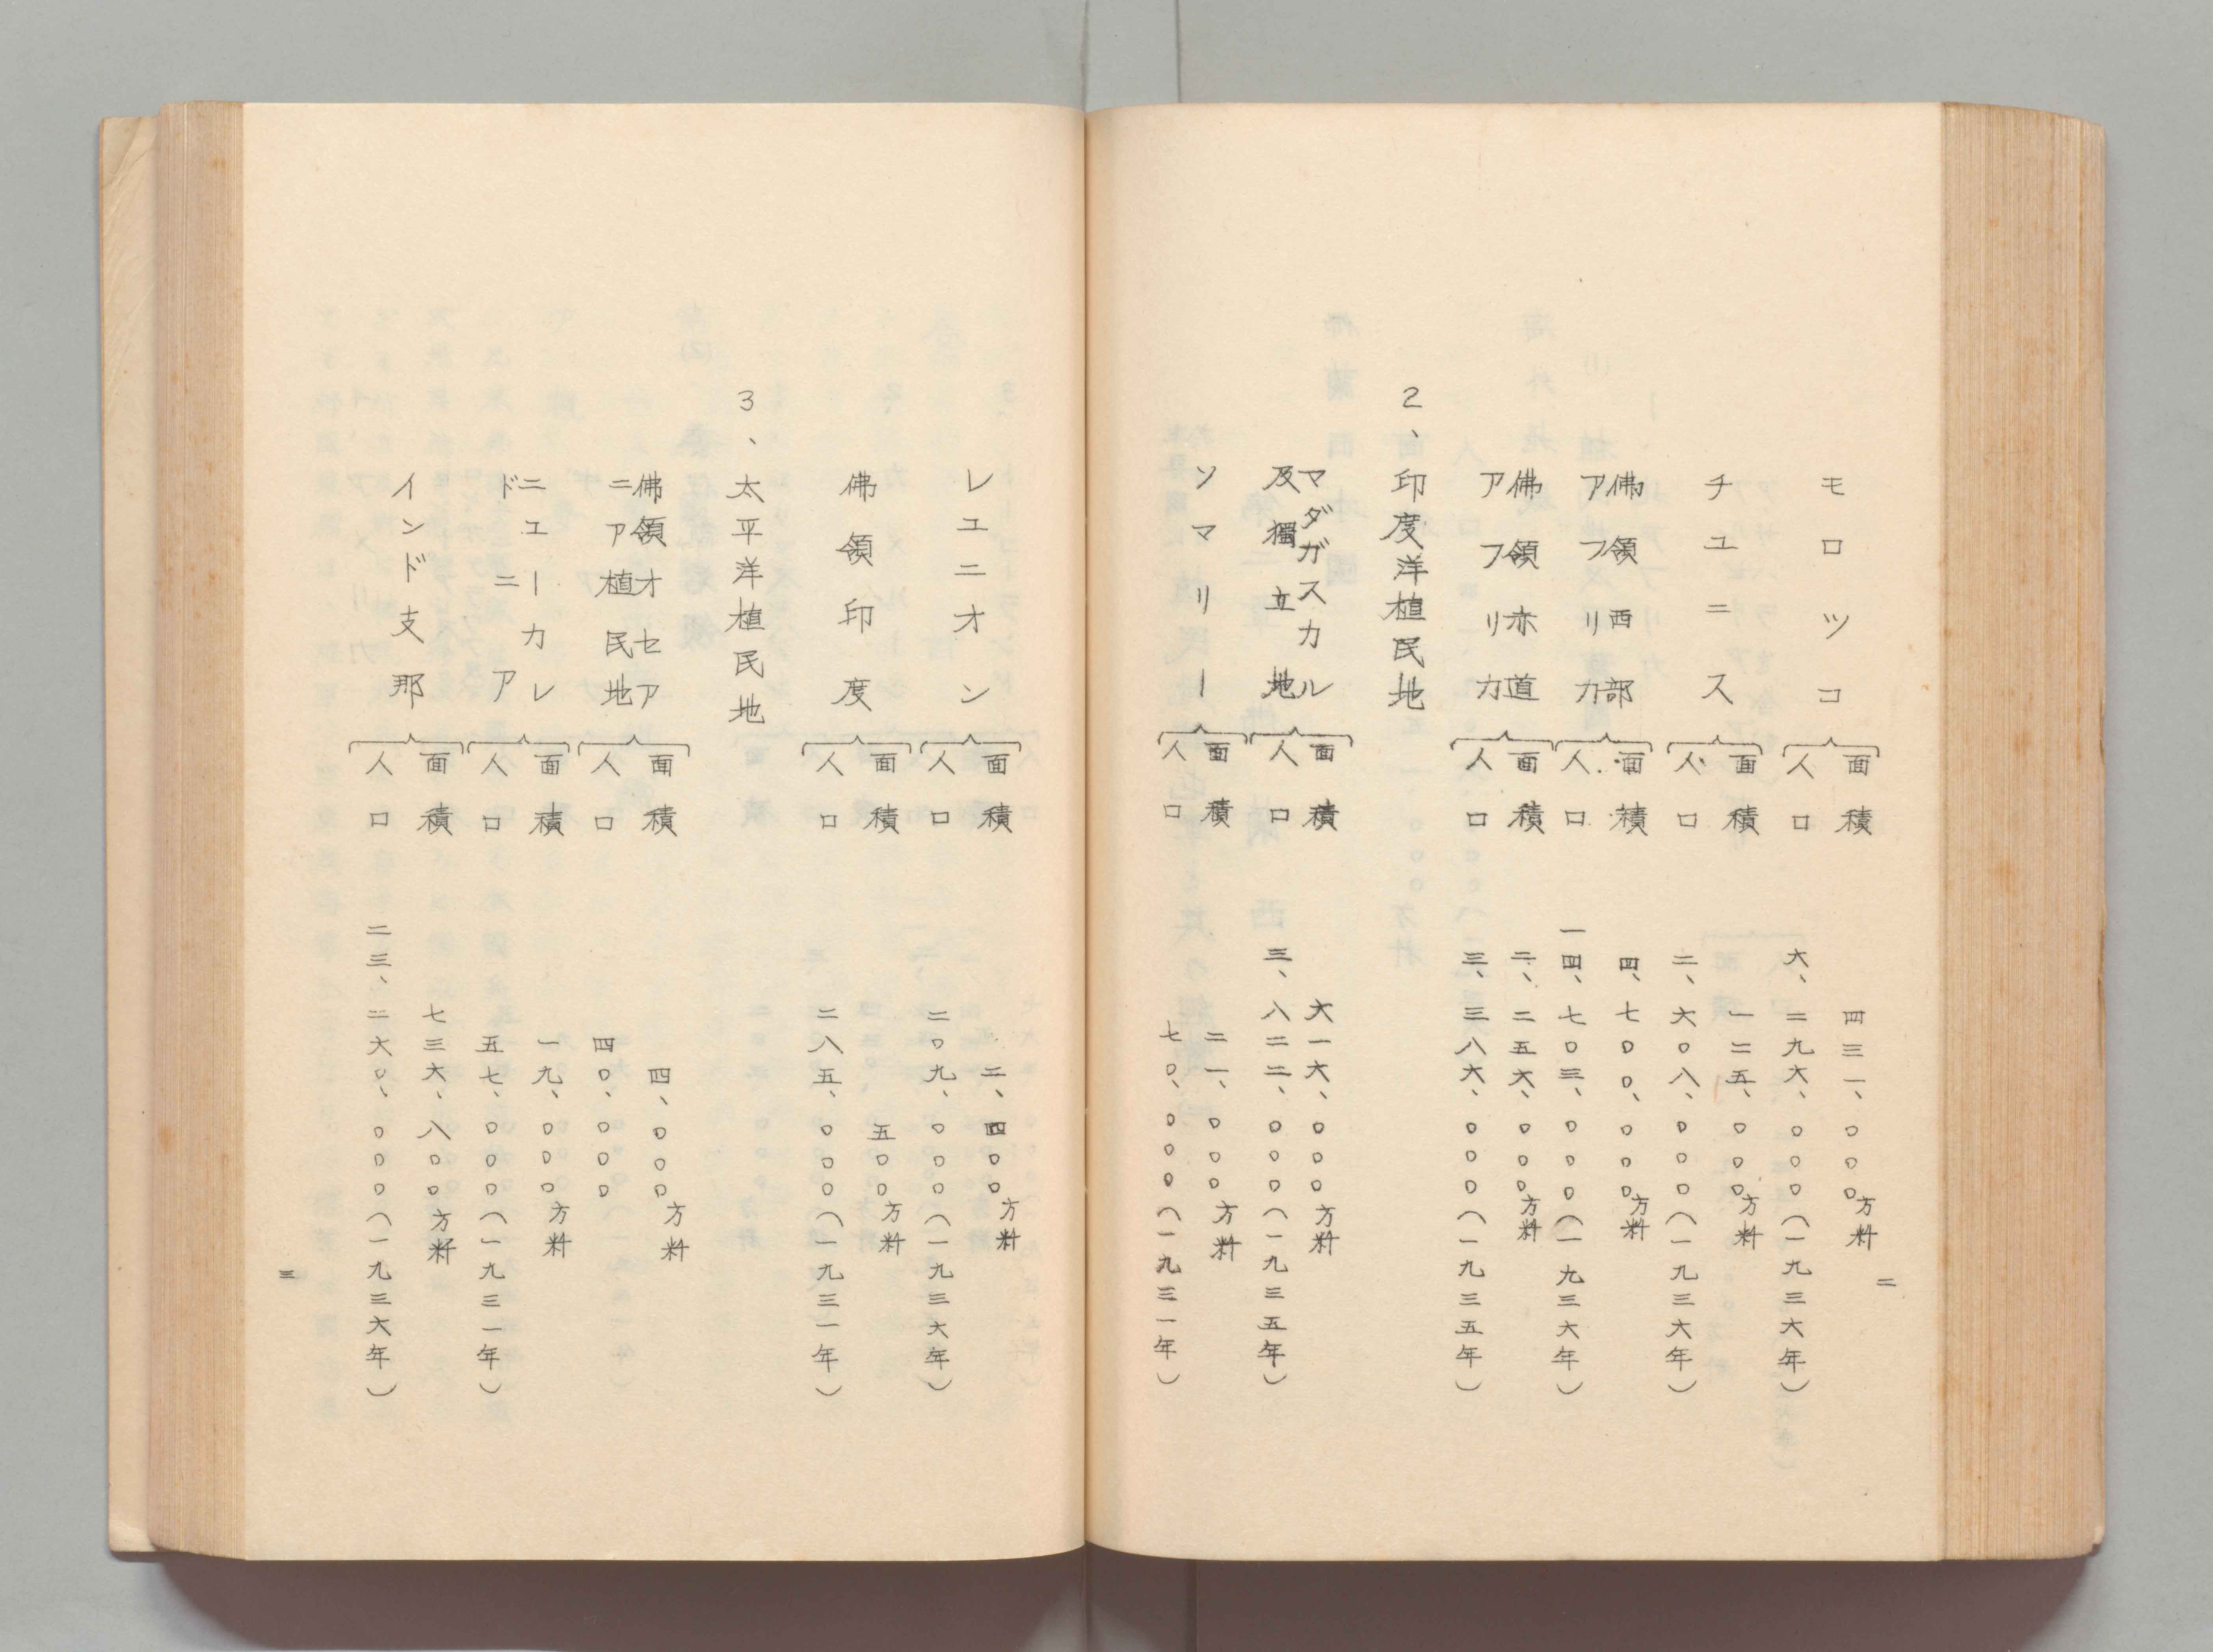 二
モロツコ
面積 四三一、〇〇〇方粁
人口 六、二九六、〇〇〇(一九三六年)
チユニス
面積 一二五、〇〇〇方粁
人口 二、六〇八、〇〇〇(一九三六年)
佛領西部
アフリカ
面積 四、七〇〇、〇〇〇方粁
人口 一四、七〇三、〇〇〇(一九三六年)
佛領赤道
アフリカ
面積 二、二五六、〇〇〇方粁
人口 三、三八六、〇〇〇(一九三五年)
2、印度洋植民地
マダガスカル
及獨立地
面積 六一六、〇〇〇方粁
人口 三、八二二、〇〇〇(一九三五年)
ソマリー
面積 二一、〇〇〇方粁
人口 七〇、〇〇〇(一九三一年)
レユニオン
面積 二、四〇〇方粁
人口 二〇九、〇〇〇(一九三六年)
佛領印度
面積 五〇〇方粁
人口 二八五、〇〇〇(一九三一年)
3、太平洋植民地
佛領オセア
ニア植民地
面積 四、〇〇〇方粁
人口 四〇、〇〇〇
ニユーカレ
ドニア
面積 一九、〇〇〇方粁
人口 五七、〇〇〇(一九三一年)
インド支那
面積 七三六、八〇〇方粁
人口 二三、二六〇、〇〇〇(一九三六年)
三